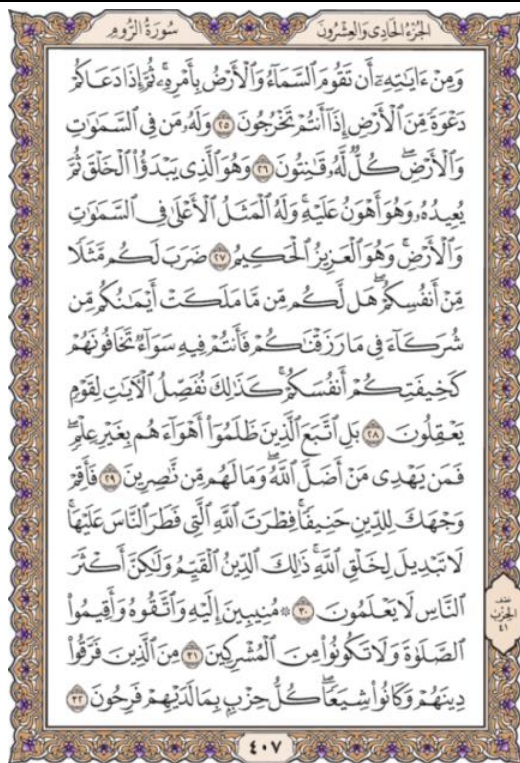 الجُزْءُ الحَادِى وَالعِشْرُونَ
سُورَةُ الرُّومِ
وَمِنْ ءَايَٰتِهِۦٓ أَن تَقُومَ ٱلسَّمَآءُ وَٱلْأَرْضُ بِأَمْرِهِۦ ثُمَّ إِذَا دَعَاكُمْ
دَعْوَةً مِّنَ ٱلْأَرْضِ إِذَآ أَنتُمْ تَخْرُجُونَ ٢٥ وَلَهُۥ مَن فِى ٱلسَّمَٰوَٰتِ
وَٱلْأَرْضِ ۖ كُلٌّ لَّهُۥ قَٰنِتُونَ ٢٦ وَهُوَ ٱلَّذِى يَبْدَؤُا۟ ٱلْخَلْقَ ثُمَّ
يُعِيدُهُۥ وَهُوَ أَهْوَنُ عَلَيْهِ ۚ وَلَهُ ٱلْمَثَلُ ٱلْأَعْلَىٰ فِى ٱلسَّمَٰوَٰتِ
وَٱلْأَرْضِ ۚ وَهُوَ ٱلْعَزِيزُ ٱلْحَكِيمُ ٢٧ ضَرَبَ لَكُم مَّثَلًا
مِّنْ أَنفُسِكُمْ ۖ هَل لَّكُم مِّن مَّا مَلَكَتْ أَيْمَٰنُكُم مِّن
شُرَكَآءَ فِى مَا رَزَقْنَٰكُمْ فَأَنتُمْ فِيهِ سَوَآءٌ تَخَافُونَهُمْ
كَخِيفَتِكُمْ أَنفُسَكُمْ ۚ كَذَٰلِكَ نُفَصِّلُ ٱلْءَايَٰتِ لِقَوْمٍ
يَعْقِلُونَ ٢٨ بَلِ ٱتَّبَعَ ٱلَّذِينَ ظَلَمُوٓا۟ أَهْوَآءَهُم بِغَيْرِ عِلْمٍ ۖ
فَمَن يَهْدِى مَنْ أَضَلَّ ٱللَّهُ ۖ وَمَا لَهُم مِّن نَّٰصِرِينَ ٢٩ فَأَقِمْ
وَجْهَكَ لِلدِّينِ حَنِيفًا ۚ فِطْرَتَ ٱللَّهِ ٱلَّتِى فَطَرَ ٱلنَّاسَ عَلَيْهَا ۚ
لَا تَبْدِيلَ لِخَلْقِ ٱللَّهِ ۚ ذَٰلِكَ ٱلدِّينُ ٱلْقَيِّمُ وَلَٰكِنَّ أَكْثَرَ
ٱلنَّاسِ لَا يَعْلَمُونَ ٣٠ ۞ مُنِيبِينَ إِلَيْهِ وَٱتَّقُوهُ وَأَقِيمُوا۟
ٱلصَّلَوٰةَ وَلَا تَكُونُوا۟ مِنَ ٱلْمُشْرِكِينَ ٣١ مِنَ ٱلَّذِينَ فَرَّقُوا۟
دِينَهُمْ وَكَانُوا۟ شِيَعًا ۖ كُلُّ حِزْبٍۭ بِمَا لَدَيْهِمْ فَرِحُونَ ٣٢
نصف
الحزب
٤١
٤٠٧